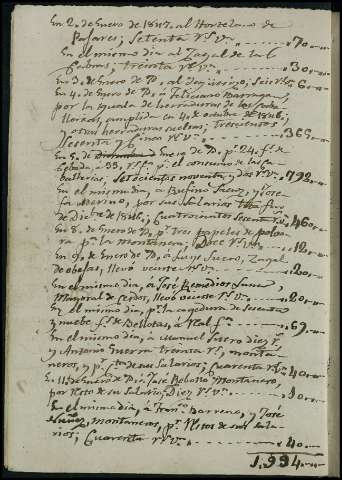 En 2. de Enero de 1847. al Hortelano de
Pajares; Setenta r.s v.n " 70
En el mismo dia al Zagal de las
Cabras; treinta r.s v.n " 30
En 3. de Enero de Yd. al Seis r.s 6
En 4. de Enero de Yd. á Feliciano Barragan,
por la iguala de herraduras de las
cumplida en 4. de octubre de 1846,
y otras herraduras sueltas; trescientos
Sesenta y cinco r.s v.n " 365
En 5. de Enero de Yd. p.r 24. f.s de
Cebada, á 33. r.s f.a p.a el consumo de las Ca-
ballerias, Setecientos noventa, y dos r.s v.n 792
En el mismo dia, á Rufino Saez, y José
Merino, por sus salarios fin
de Dic.bre de 1846; Cuatrocientos Sesenta r.s 460
En 8. de Enero de Yd. p.r tres papeles de polvo-
ra p.a la Montanera; Doce r.s v.n 12
En 9. de Enero de Yd. á Luis Suero, Zagal
de obejas, llevó veinte r.s v.n 20
En el mismo dia, á José Benedior
Mayoral de Cerdos, llevó veinte r.s v.n 20
En el mismo dia, p.r la cogedura de Sesenta
y nuebe f.s de Bellotas, á Real f.a 69
En el mismo dia, á Manuel Suero diez r.s
y Antonio Guerra treinta r.s, monta-
neros, y p.r de sus Salarios, Cuarenta r.s v.n 40
En 11. de Enero de Yd. á José Rebollo Montanero,
por Resto de su Salario; Diez r.s v.n 10
En el mismo dia, á Fran.co Barreno, y José
Nuñez, Montaneros, p.r Restos de sus Sala-
rios; Cuarenta r.s v.n 40
1.994